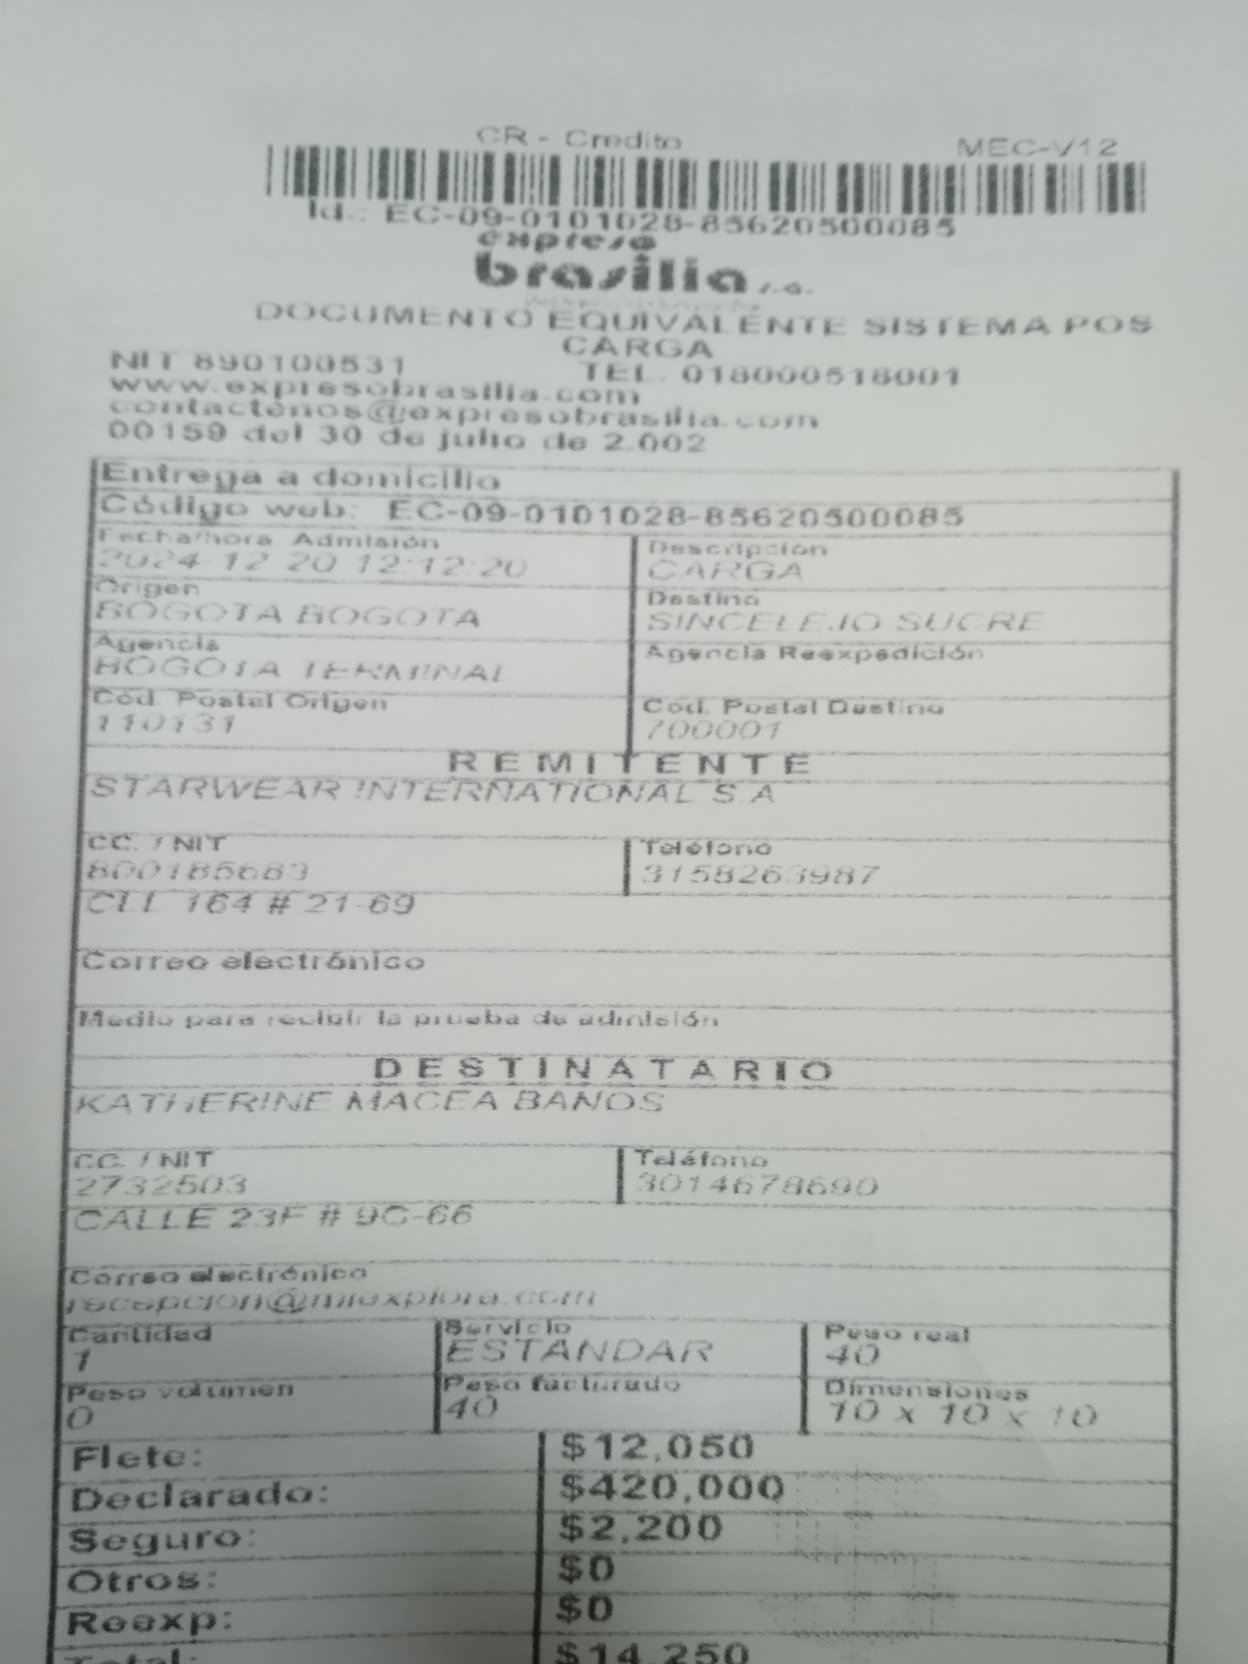 CR - Credito MEC-V12
Id.: EC-09-0101028-85620500085
expreso
brasilia s.a.
DOCUMENTO EQUIVALENTE SISTEMA POS
CARGA
NIT 890100531 TEL. 018000518001
www.expresobrasilia.com
contactenos@expresobrasilia.com
00159 del 30 de julio de 2.002
Entrega a domicilio
Código web: EC-09-0101028-85620500085
Fecha/hora Admisión Descripción
2024-12-20 12:12:20 CARGA
Origen Destino
BOGOTA BOGOTA SINCELEJO SUCRE
Agencia Agencia Reexpedición
BOGOTA TERMINAL
Cod. Postal Origen Cod. Postal Destino
110131 700001
REMITENTE
STARWEAR INTERNATIONAL S.A
CC. / NIT Teléfono
800185683 3158263987
CLL 164 # 21-69
Correo electrónico
Medio para recibir la prueba de admisión
DESTINATARIO
KATHERINE MACEA BANOS
CC. / NIT Teléfono
2732503 3014678690
CALLE 23F # 9C-66
Correo electrónico
Cantidad Servicio Peso real
1 ESTANDAR 40
Peso volumen Peso facturado Dimensiones
0 40 10 x 10 x 10
Flete: $12,050
Declarado: $420,000
Seguro: $2,200
Otros: $0
Reexp: $0
Total: $14,250